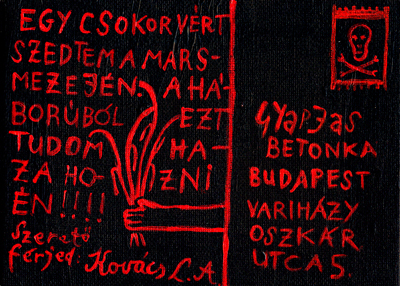 EGY CSOKOR VÉRT
SZEDTEM A MARS-
MEZEJÉN. A HÁ-
BORÚBÓL EZT
TUDOM HA-
ZA HO- ZNI
ÉN!!!!
Szerető
férjed: Kovács L.A.
GYapJas
BETONKA
BUDAPEST
VARIHÁZY
OSZKÁR
UTCA 5.